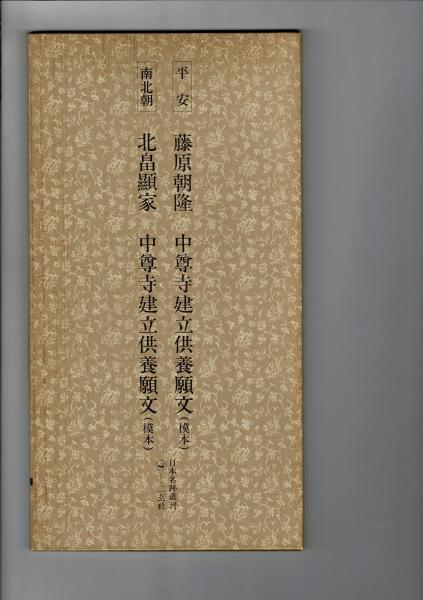 平安 藤原朝隆 中尊寺建立供養願文(模本)
南北朝 北畠顯家 中尊寺建立供養願文(模本)
日本名跡叢刊
二玄社